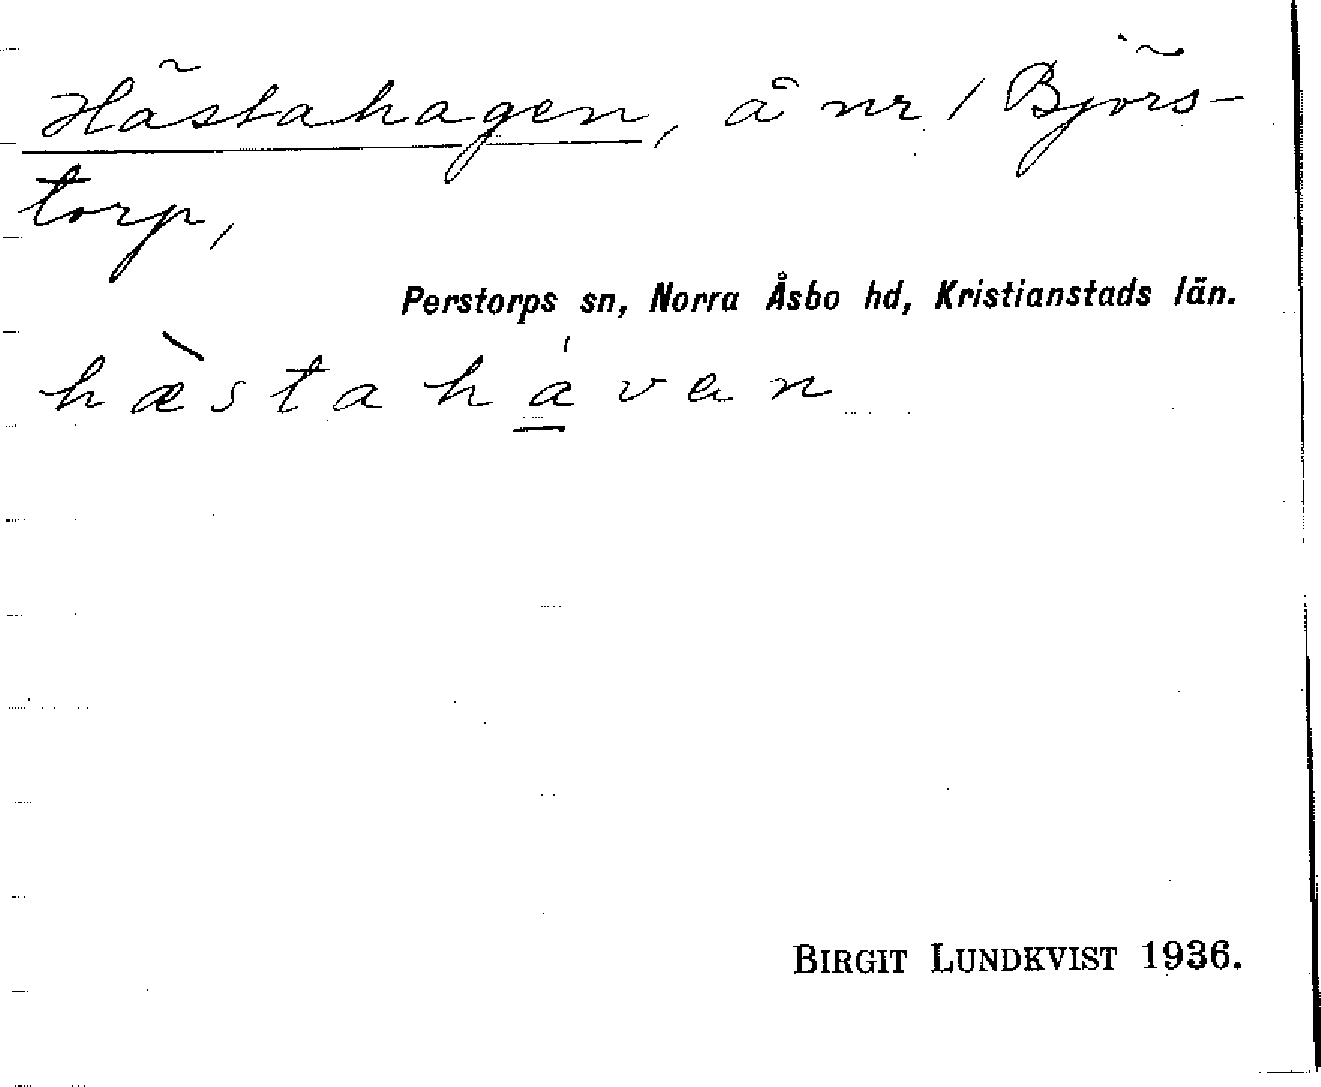 Hästahagen, å nr 1 Björs-
torp,
Perstorps sn, Norra Åsbo hd, Kristianstads län.
hæ̀stahá̱van
BIRGIT LUNDKVIST 1936.